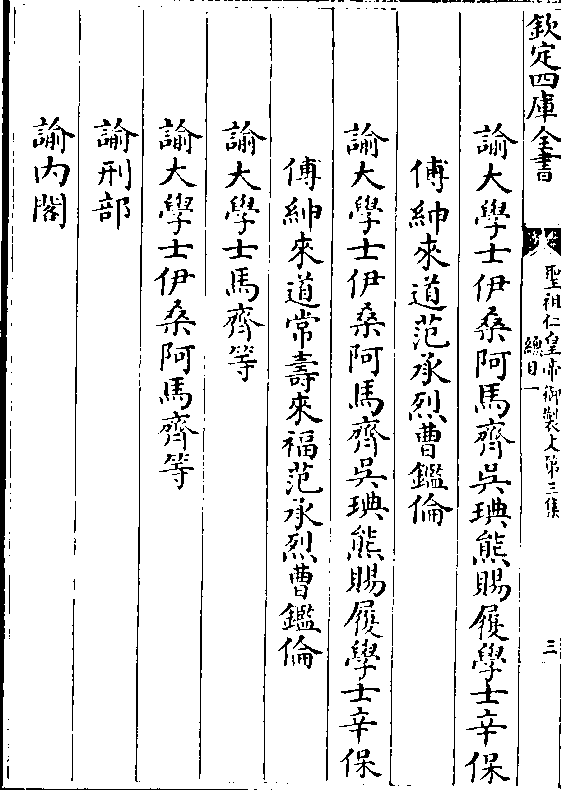 欽定四庫全書
聖祖仁皇帝御製文第三集
總目一
三
諭大學士伊桑阿馬齊吳琠熊賜履學士辛保
傅紳來道范承烈曹鑑倫
諭大學士伊桑阿馬齊吳琠熊賜履學士辛保
傅紳來道常壽來福范承烈曹鑑倫
諭大學士馬齊等
諭大學士伊桑阿馬齊等
諭刑部
諭內閣